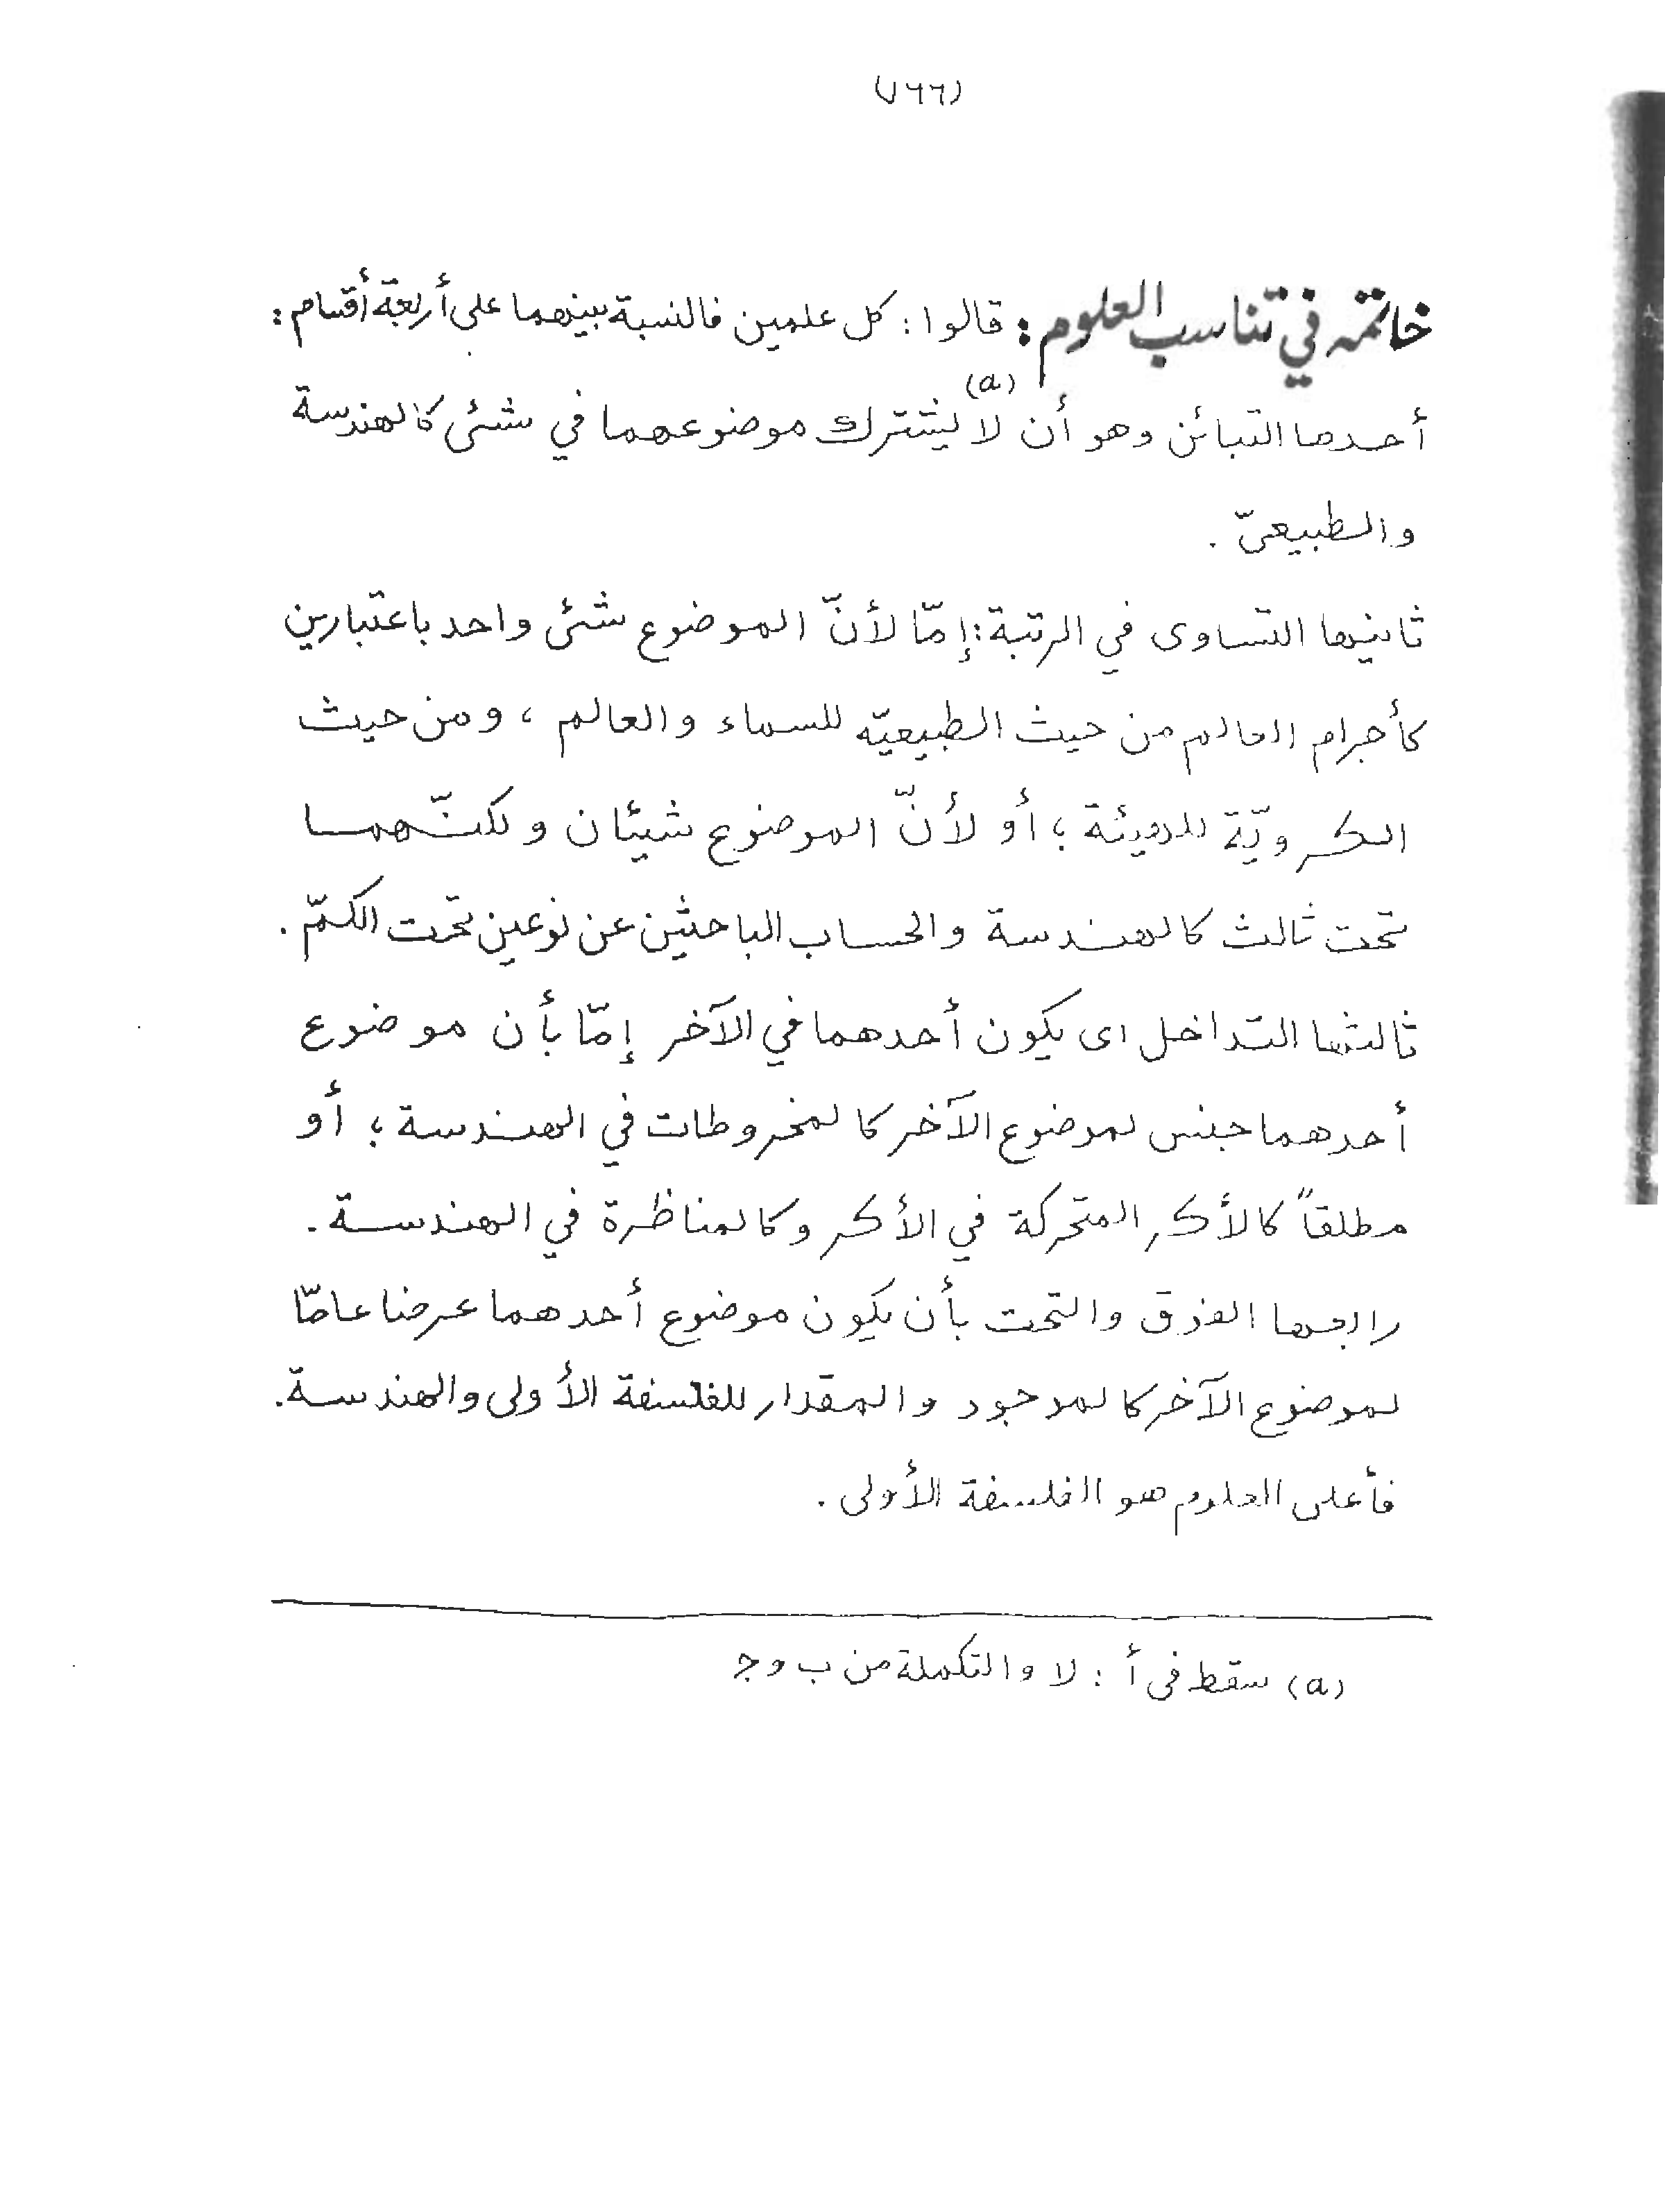 (١٦٦)
خاتمه في تناسب العلوم : قالوا : كل علمين فالنسبة بينهما على أربعة أقسام :
أحدها التبائن وهو أن لا(a) يشترك موضوعهما في شئى كالهندسة
والطبيعىّ .
ثانيها التساوى في الرتبة : إمّا لأنّ الموضوع شئى واحد باعتبارين
كأجرام العالم من حيث الطبيعيّه للسماء والعالم ، ومن حيث
الكرويّة للهيئة ؛ أو لأنّ الموضوع شيئان ولكنّهما
تحت ثالث كالهندسة والحساب الباحثين عن نوعين تحت الكمّ .
ثالثها التداخل اى يكون أحدهما في الآخر إمّا بأن موضوع
أحدهما جنس لموضوع الآخر كالمخروطات في الهندسة ؛ أو
مطلقاً كالأكر المتحركة في الأكر وكالمناظرة في الهندسة .
رابعها الفوق والتحت بأن يكون موضوع أحدهما عرضا عامّا
لموضوع الآخر كالموجود والمقدار للفلسفة الأولى والهندسة .
فأعلى العلوم هو الفلسفة الأولى .
(a) سقط فى أ : لا والتكملة من ب وج